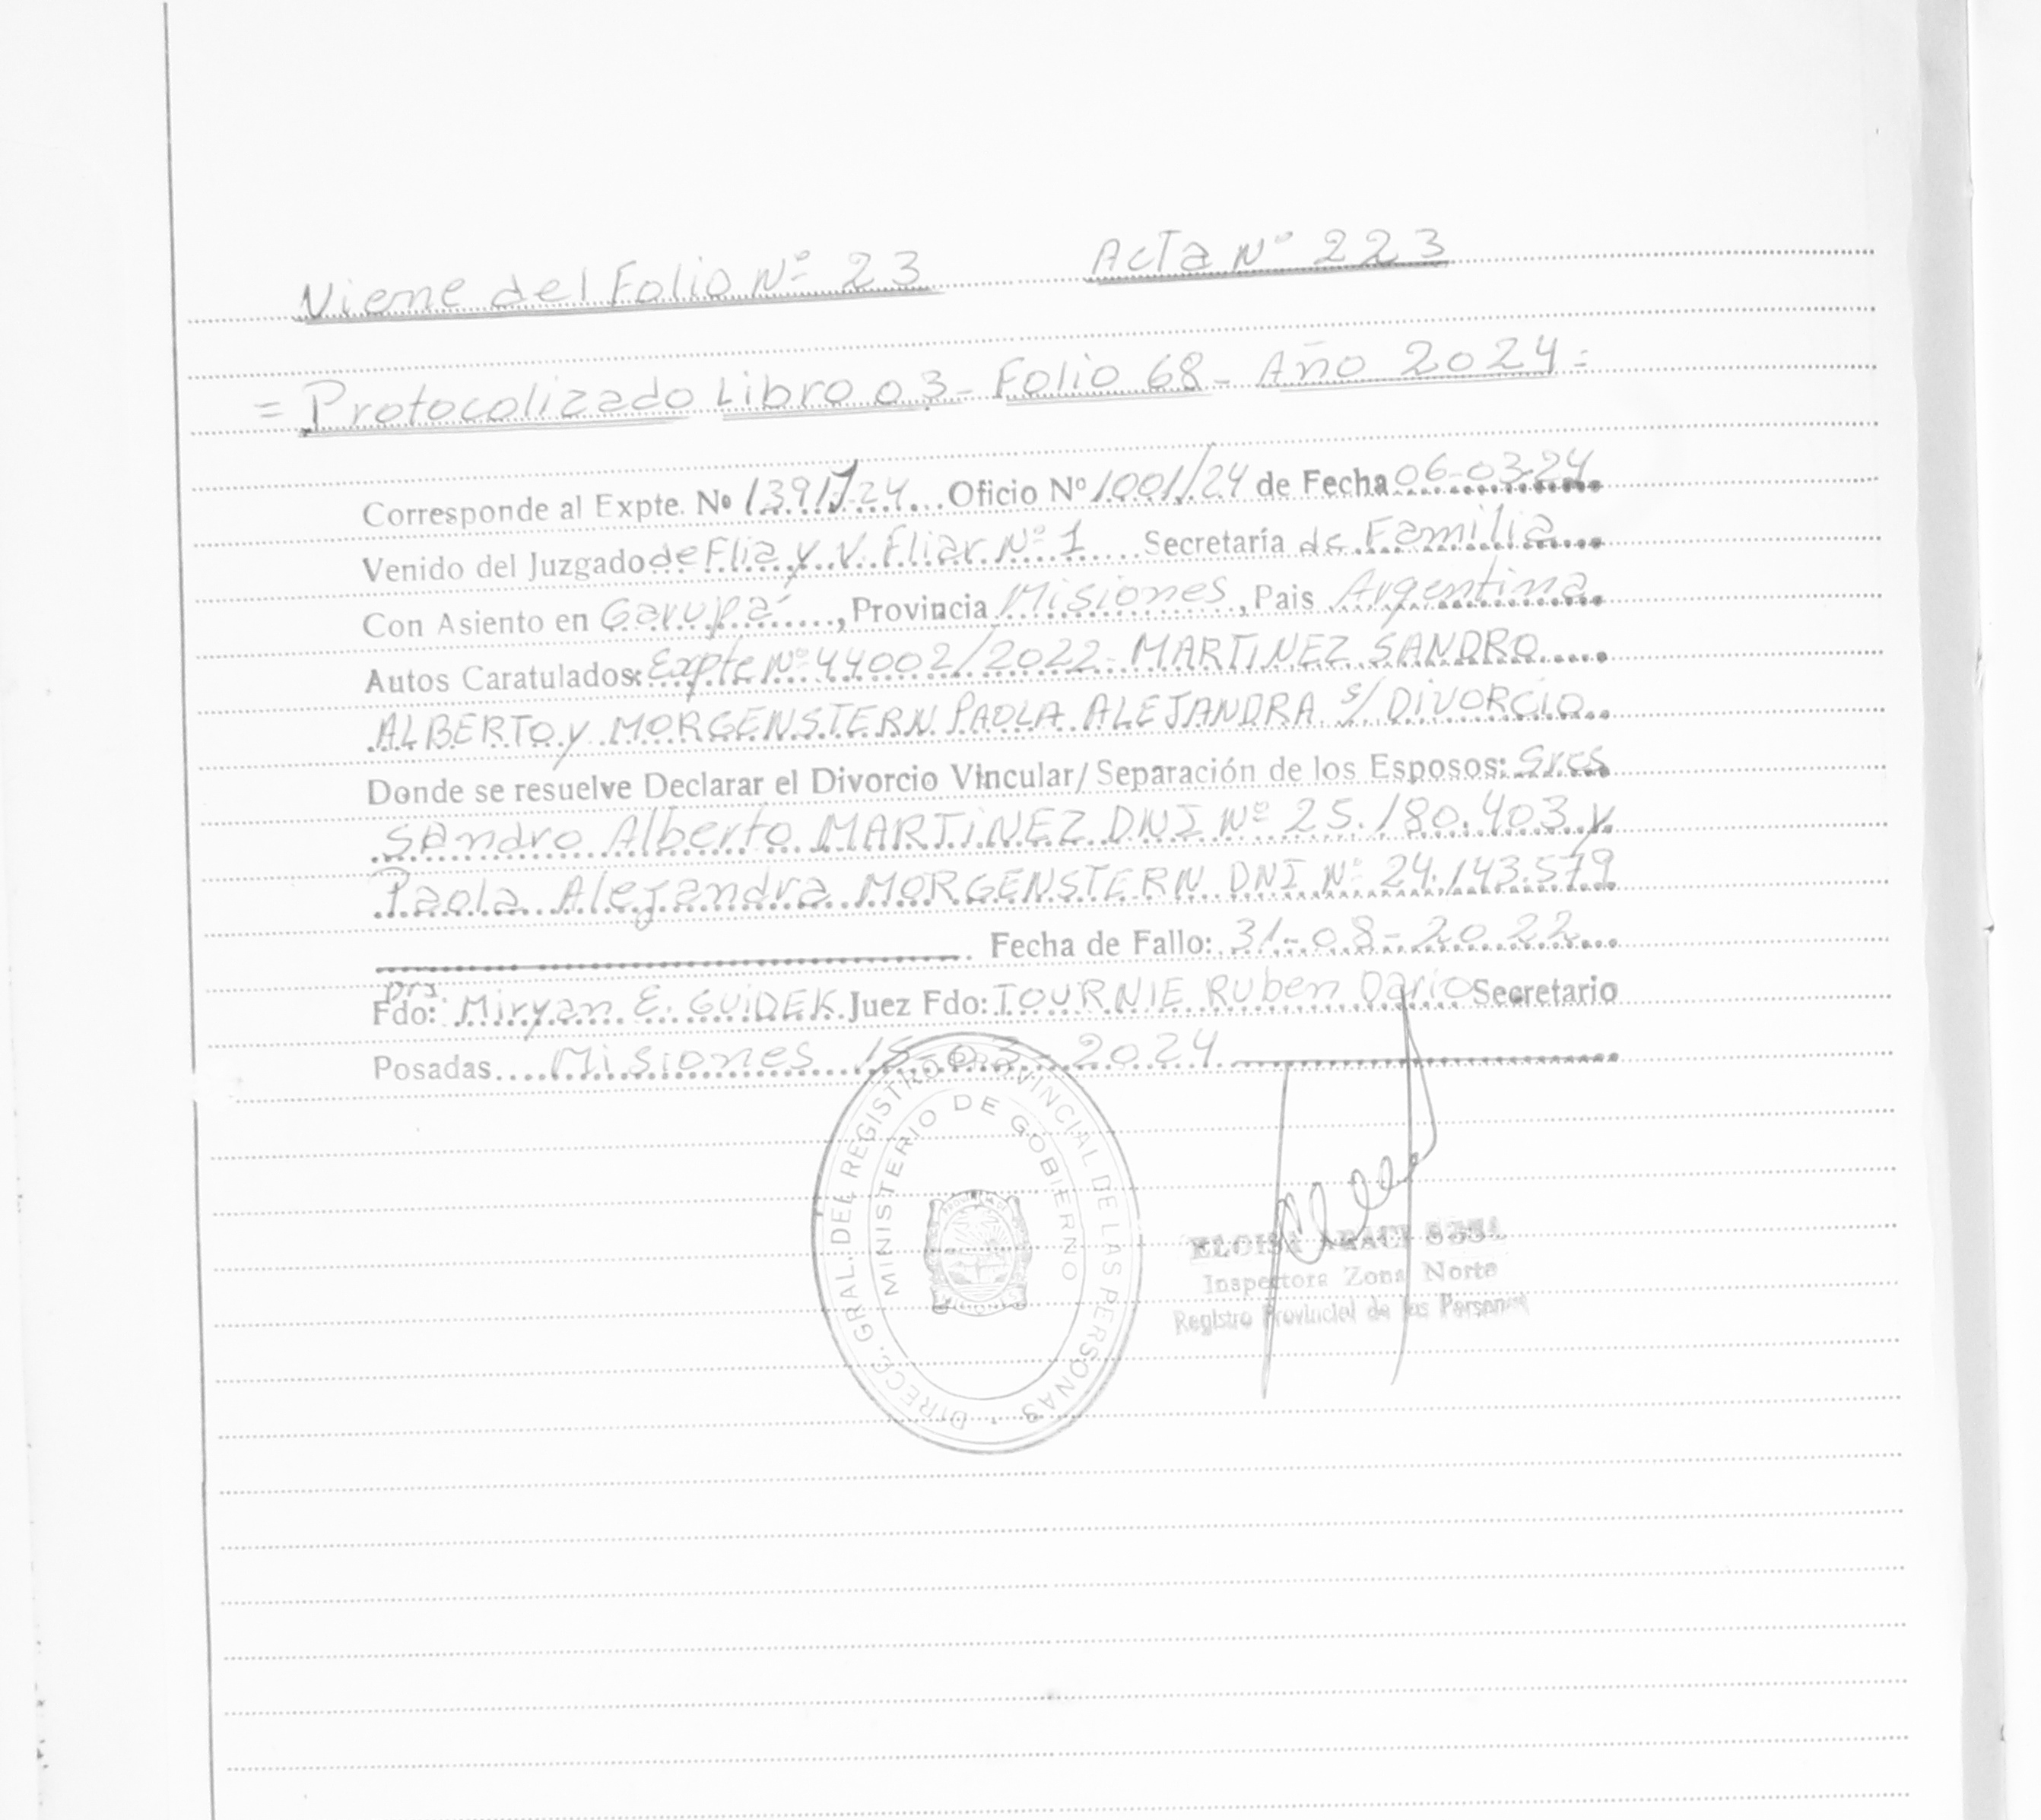 Viene del Folio Nº 23 Acta Nº 223
= Protocolizado Libro 03 - Folio 68 - Año 2024 =
Corresponde al Expte. Nº 1391J24 Oficio Nº 1001/24 de Fecha 06-03-24
Venido del Juzgado de Flia y V. Fliar Nº 1 Secretaría de Familia
Con Asiento en Garupá, Provincia Misiones, Pais Argentina
Autos Caratulados: Expte Nº 44002/2022 - MARTINEZ SANDRO
ALBERTO y MORGENSTERN PAOLA ALEJANDRA S/ DIVORCIO
Donde se resuelve Declarar el Divorcio Vincular/ Separación de los Esposos: Sres
Sandro Alberto MARTINEZ DNI Nº 25.180.403 y
Paola Alejandra MORGENSTERN DNI Nº 24.143.579
Fecha de Fallo: 31-08-2022
Fdo: Dra. Miryan E. GUIDEK Juez Fdo: TOURNIE Ruben Dario Secretario
Posadas Misiones 15-03-2024
DIRECC. GRAL. DEL REGISTRO PROVINCIAL DE LAS PERSONAS
MINISTERIO DE GOBIERNO
ELOISA
Inspectora Zona Norte
Registro Provincial de las Personas